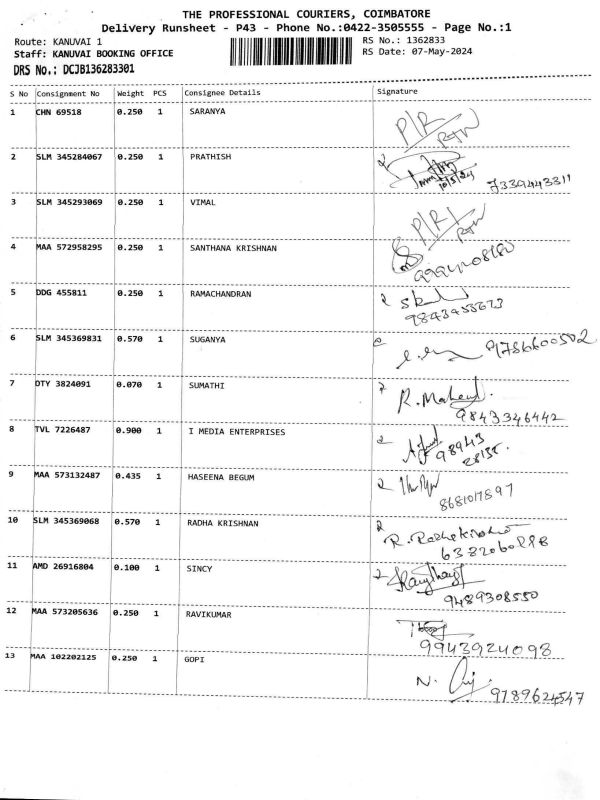 THE PROFESSIONAL COURIERS, COIMBATORE
Delivery Runsheet - P43 - Phone No.:0422-3505555 - Page No.:1
Route: KANUVAI 1 RS No.: 1362833
Staff: KANUVAI BOOKING OFFICE RS Date: 07-May-2024
DRS No.: DCJB136283301
S No Consignment No Weight PCS Consignee Details Signature
1 CHN 69518 0.250 1 SARANYA P/R RTN
2 SLM 345284067 0.250 1 PRATHISH 10/5/24 7339443311
3 SLM 345293069 0.250 1 VIMAL P/R RTN
4 MAA 572958295 0.250 1 SANTHANA KRISHNAN
5 DDG 455811 0.250 1 RAMACHANDRAN
6 SLM 345369831 0.570 1 SUGANYA 9786600502
7 OTY 3824091 0.070 1 SUMATHI R. Mahesh 9843346442
8 TVL 7226487 0.900 1 I MEDIA ENTERPRISES 98943
9 MAA 573132487 0.435 1 HASEENA BEGUM 8681017897
10 SLM 345369068 0.570 1 RADHA KRISHNAN R. Radhakrishn
11 AMD 26916804 0.100 1 SINCY 9489308550
12 MAA 573205636 0.250 1 RAVIKUMAR 9943924098
13 MAA 102202125 0.250 1 GOPI N. 9789624547